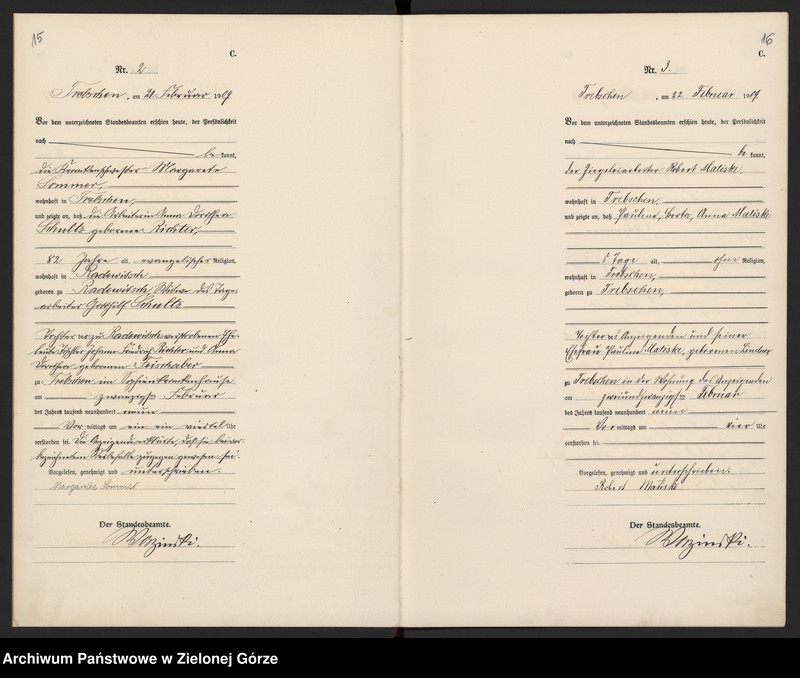 15
C.
Nr. 2
Trebschen, am 21. Februar 1909
Vor dem unterzeichneten Standesbeamten erschien heute, der Persönlichkeit
nach
be kannt,
die Krankenschwester Margarete
Sommer,
wohnhaft in Trebschen,
und zeigte an, daß die Arbeiterin Anna Dorothea
Schultz geborene Richter,
82 Jahre alt, evangelischer Religion,
wohnhaft in Radewitsch
geboren zu Radewitsch, Witwe des Tage-
arbeiter Gotthilf Schultz
Tochter der zu Radewitsch verstorbenen Ehe-
leute Johann Friedrich Richter und Anna
Dorothea geborenen
zu Trebschen im Johanniterkrankenhause
am zwanzigsten Februar
des Jahres tausend neunhundert neun
Vor mittags um ein ein viertel Uhr
verstorben sei. Die Anzeigende erklärte, daß sie bei vor-
bezeichnetem Sterbefalle zugegen gewesen sei.
Vorgelesen, genehmigt und unterschrieben.
Margarethe Sommer
Der Standesbeamte.
Worzinski.
16
C.
Nr. 3.
Trebschen, am 22. Februar 1909.
Vor dem unterzeichneten Standesbeamten erschien heute, der Persönlichkeit
nach
be kannt,
der Ziegeleiarbeiter Robert Maliske,
wohnhaft in Trebschen,
und zeigte an, daß Pauline, Berta, Anna Maliske
8 Tage alt, ohne Religion,
wohnhaft in Trebschen,
geboren zu Trebschen,
Tochter des Anzeigenden und seiner
Ehefrau Pauline Maliske, geborenen
zu Trebschen in der Wohnung des Anzeigenden
am zweiundzwanzigsten Februar
des Jahres tausend neunhundert neun
Vor mittags um vier Uhr
verstorben sei.
Vorgelesen, genehmigt und unterschrieben.
Robert Maliske
Der Standesbeamte.
Worzinski.
Archiwum Państwowe w Zielonej Górze